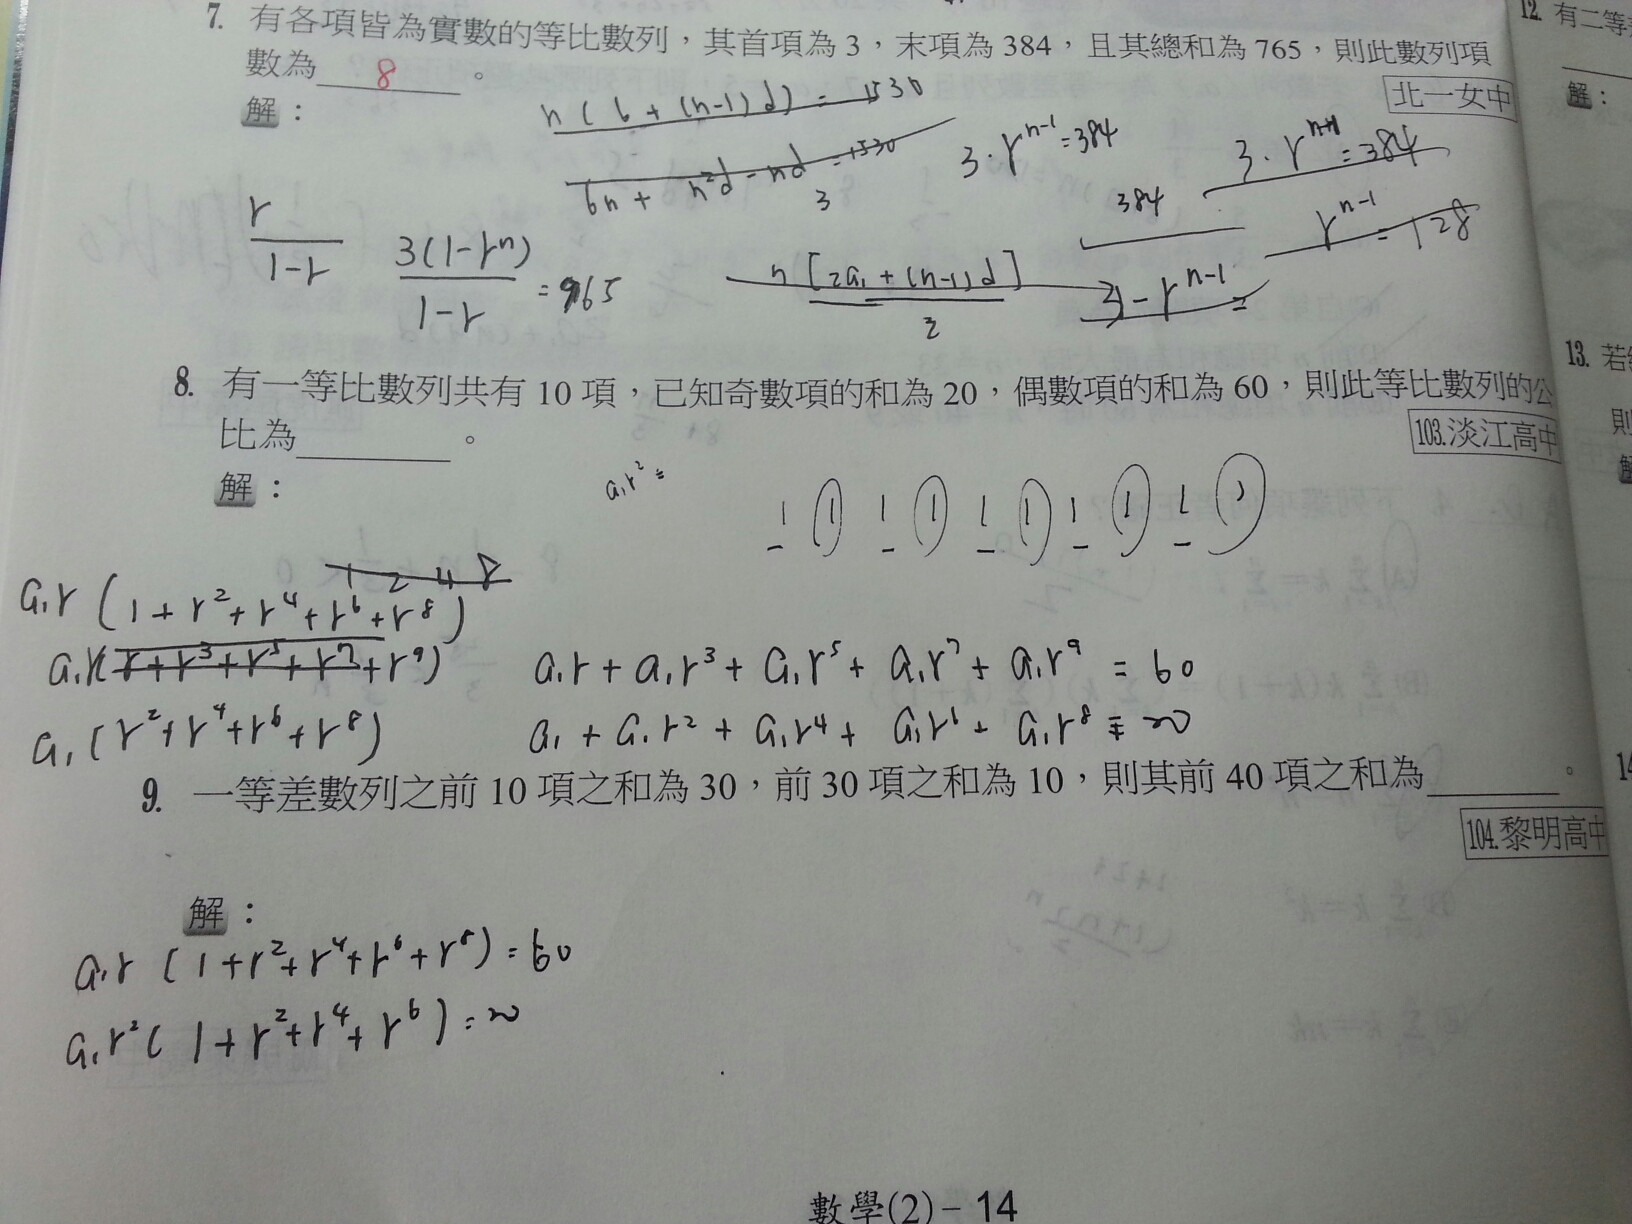 7. 有各項皆為實數的等比數列，其首項為 3，末項為 384，且其總和為 765，則此數列項
數為 8 。
北一女中
解：
n ( 6 + (n-1) d ) = 1530
6n + n²d - nd = 1530
3
3 · rⁿ⁻¹ = 384
384
rⁿ⁻¹ = 128
r
1-r
3(1-rⁿ)
1-r
n [ 2a₁ + (n-1) d ]
2
8. 有一等比數列共有 10 項，已知奇數項的和為 20，偶數項的和為 60，則此等比數列的公
比為 。
103.淡江高中
解：
a₁r² =
1 2 4 8
a₁r ( 1 + r² + r⁴ + r⁶ + r⁸ )
r + r³ + r⁵ + r⁷ + r⁹ )
a₁r + a₁r³ + a₁r⁵ + a₁r⁷ + a₁r⁹ = 60
a₁ ( r² + r⁴ + r⁶ + r⁸ )
a₁ + a₁r² + a₁r⁴ + a₁r⁶ + a₁r⁸ = 20
9. 一等差數列之前 10 項之和為 30，前 30 項之和為 10，則其前 40 項之和為 。
104.黎明高中
解：
a₁r ( 1 + r² + r⁴ + r⁶ + r⁸ ) = 60
a₁r² ( 1 + r² + r⁴ + r⁶ ) = 20
數學(2)－14
12. 有二等
解：
13. 若
則